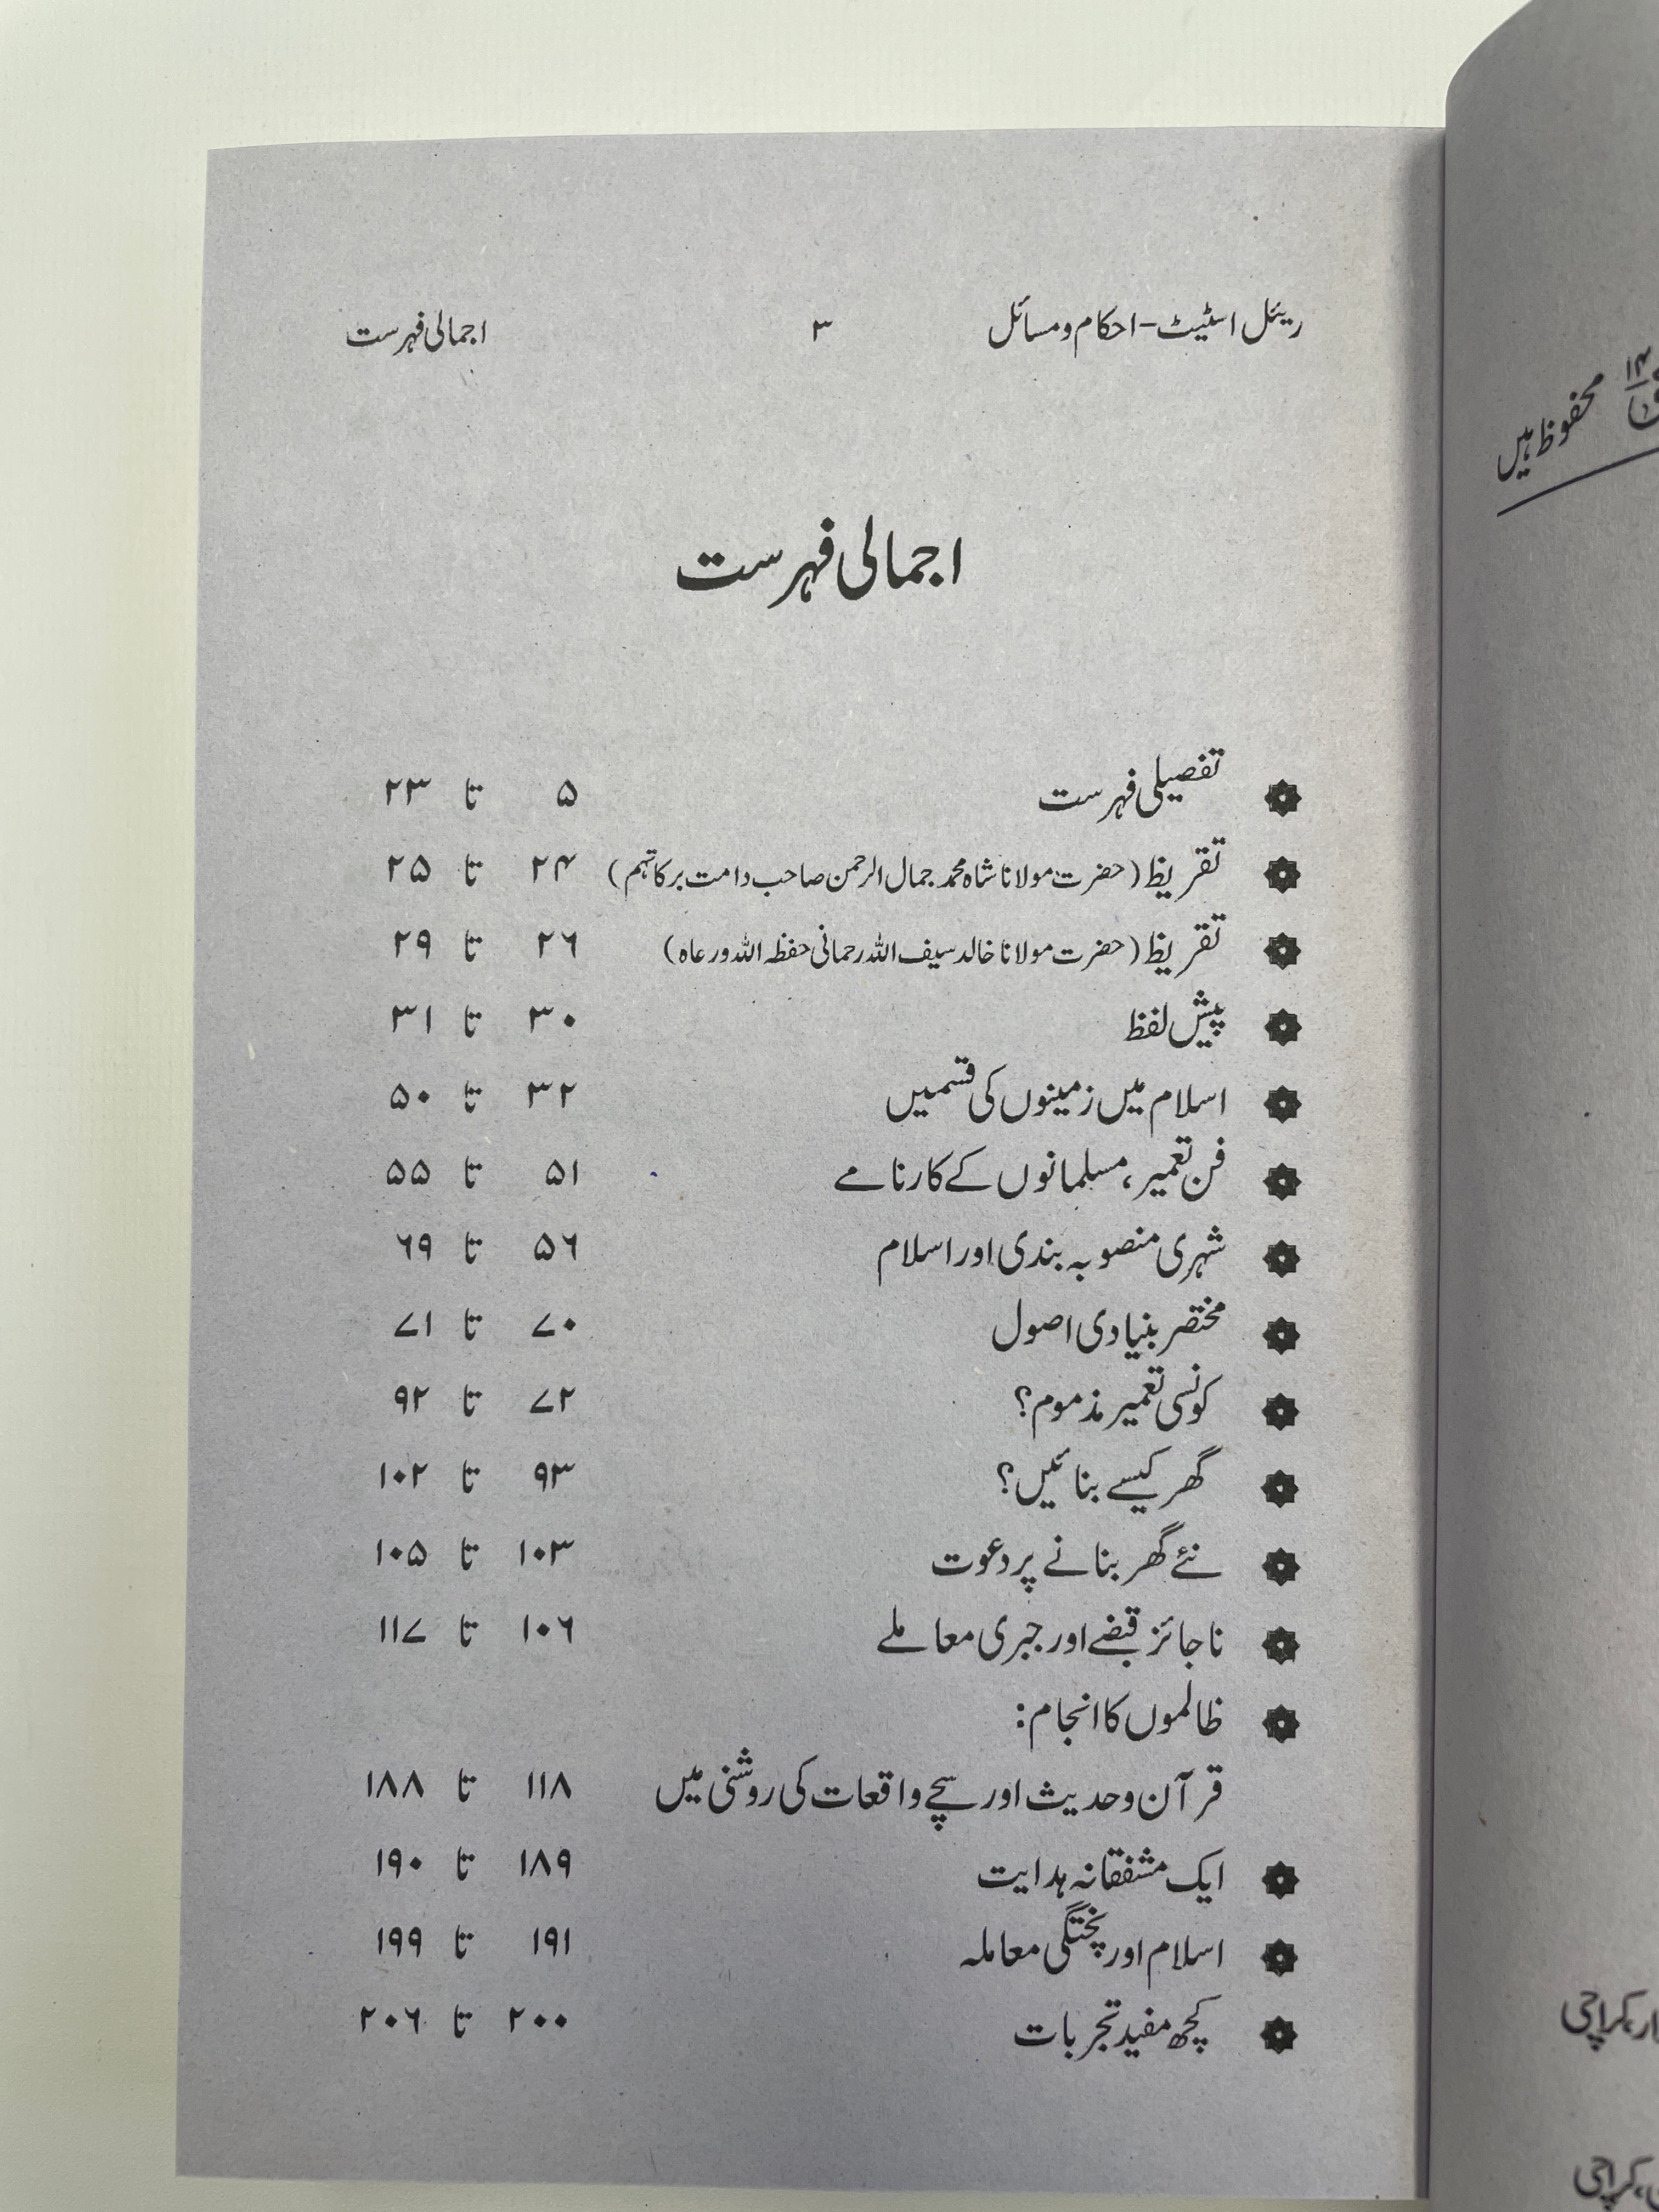 ریئل اسٹیٹ-احکام ومسائل ۳ اجمالی فہرست
اجمالی فہرست
تفصیلی فہرست ۵ تا ۲۳
تقریظ (حضرت مولانا شاہ محمد جمال الرحمن صاحب دامت برکاتہم) ۲۴ تا ۲۵
تقریظ (حضرت مولانا خالد سیف اللہ رحمانی حفظہ اللہ ورعاہ) ۲۶ تا ۲۹
پیش لفظ ۳۰ تا ۳۱
اسلام میں زمینوں کی قسمیں ۳۲ تا ۵۰
فن تعمیر، مسلمانوں کے کارنامے ۵۱ تا ۵۵
شہری منصوبہ بندی اور اسلام ۵۶ تا ۶۹
مختصر بنیادی اصول ۷۰ تا ۷۱
کونسی تعمیر مذموم؟ ۷۲ تا ۹۲
گھر کیسے بنائیں؟ ۹۳ تا ۱۰۲
نئے گھر بنانے پر دعوت ۱۰۳ تا ۱۰۵
ناجائز قبضے اور جبری معاملے ۱۰۶ تا ۱۱۷
ظالموں کا انجام:
قرآن وحدیث اور سچے واقعات کی روشنی میں ۱۱۸ تا ۱۸۸
ایک مشفقانہ ہدایت ۱۸۹ تا ۱۹۰
اسلام اور پختگی معاملہ ۱۹۱ تا ۱۹۹
کچھ مفید تجربات ۲۰۰ تا ۲۰۶
محفوظ ہیں
کراچی
کراچی